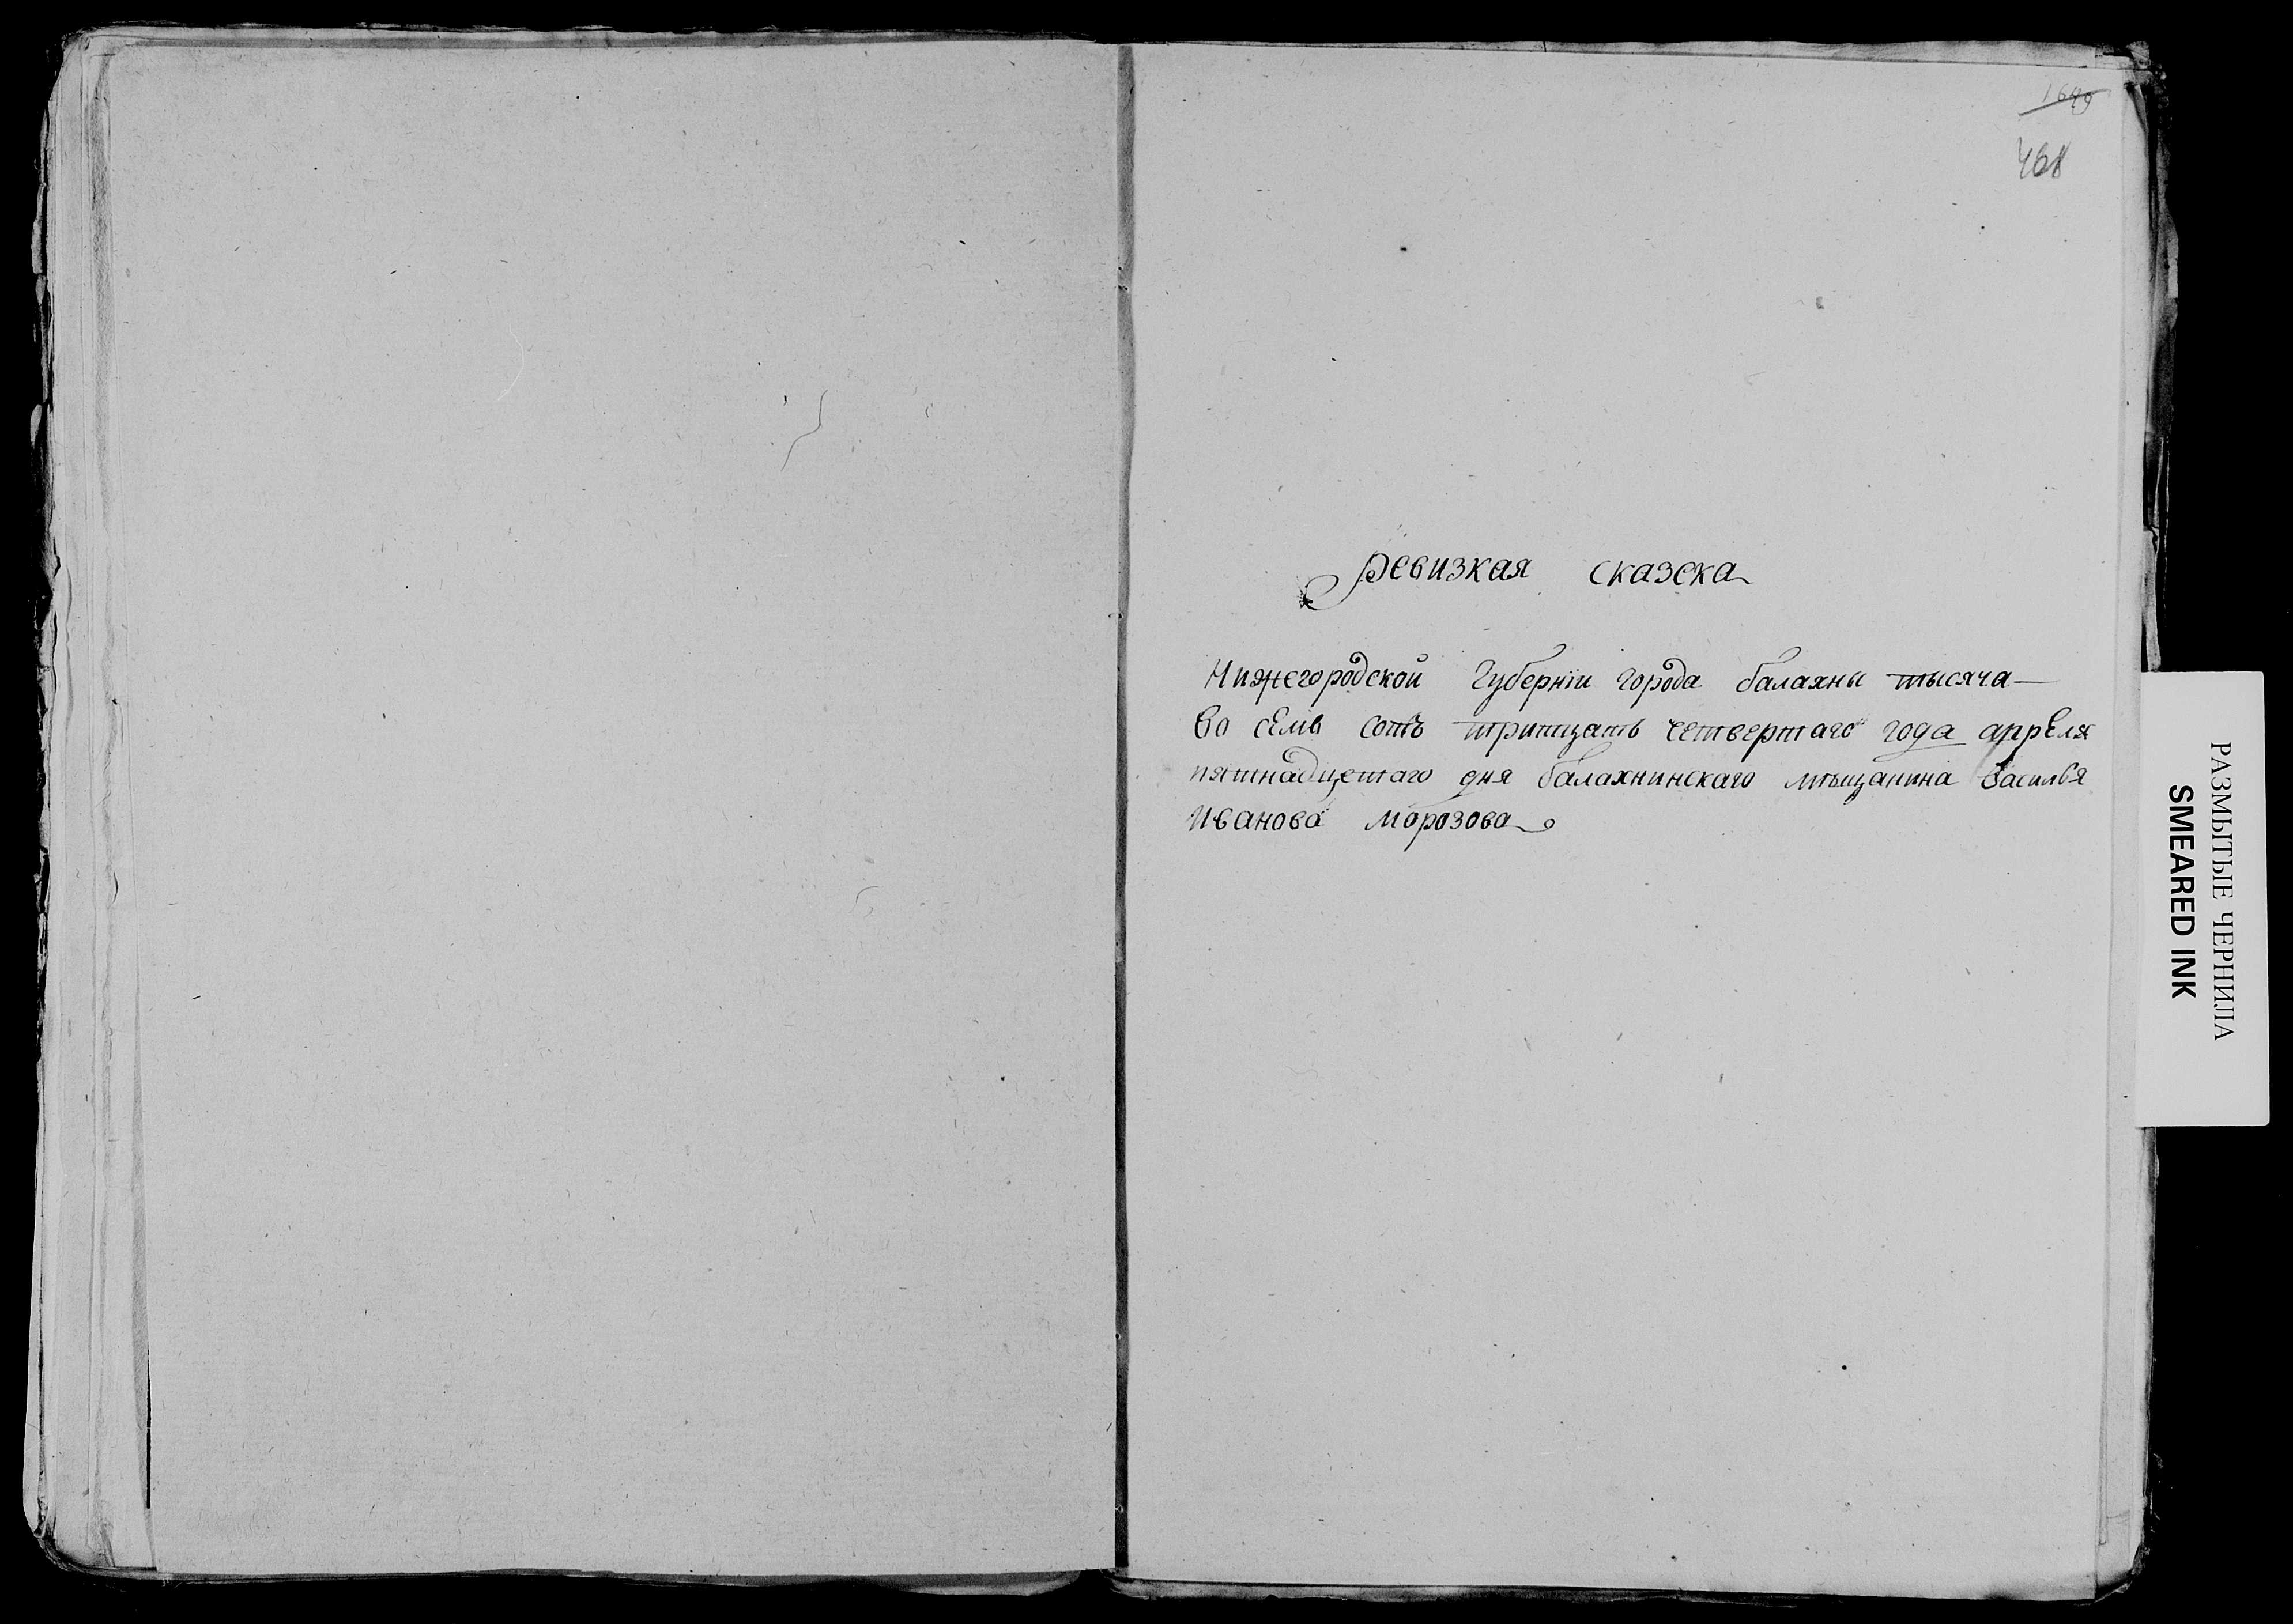 1649
468
ревизкая сказска
Нижегородской Губернїи города балахны тысяча
во семь сотъ тритцать четвертаго года апреля
пятнадцетаго дня балахнинскаго мѣщанина василья
Иванова Морозова
РАЗМЫТЫЕ ЧЕРНИЛА
SMEARED INK